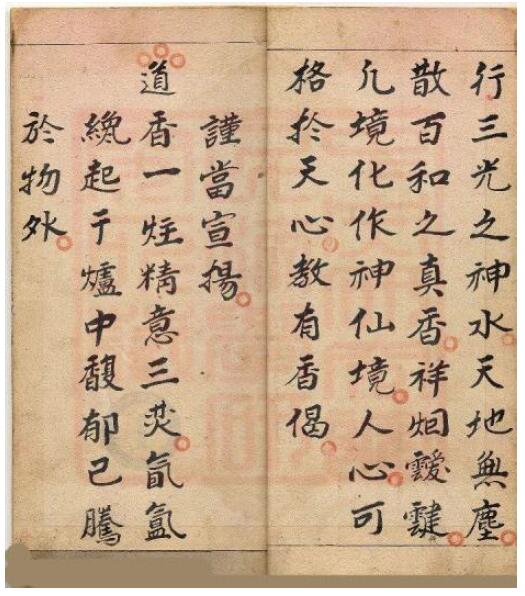 行三光之神水天地無塵
散百和之真香祥烟靉靆
凡境化作神仙境人心可
格於天心教有香偈
謹當宣揚
道香一炷精意三焚氤氳
纔起于爐中馥郁已騰
於物外